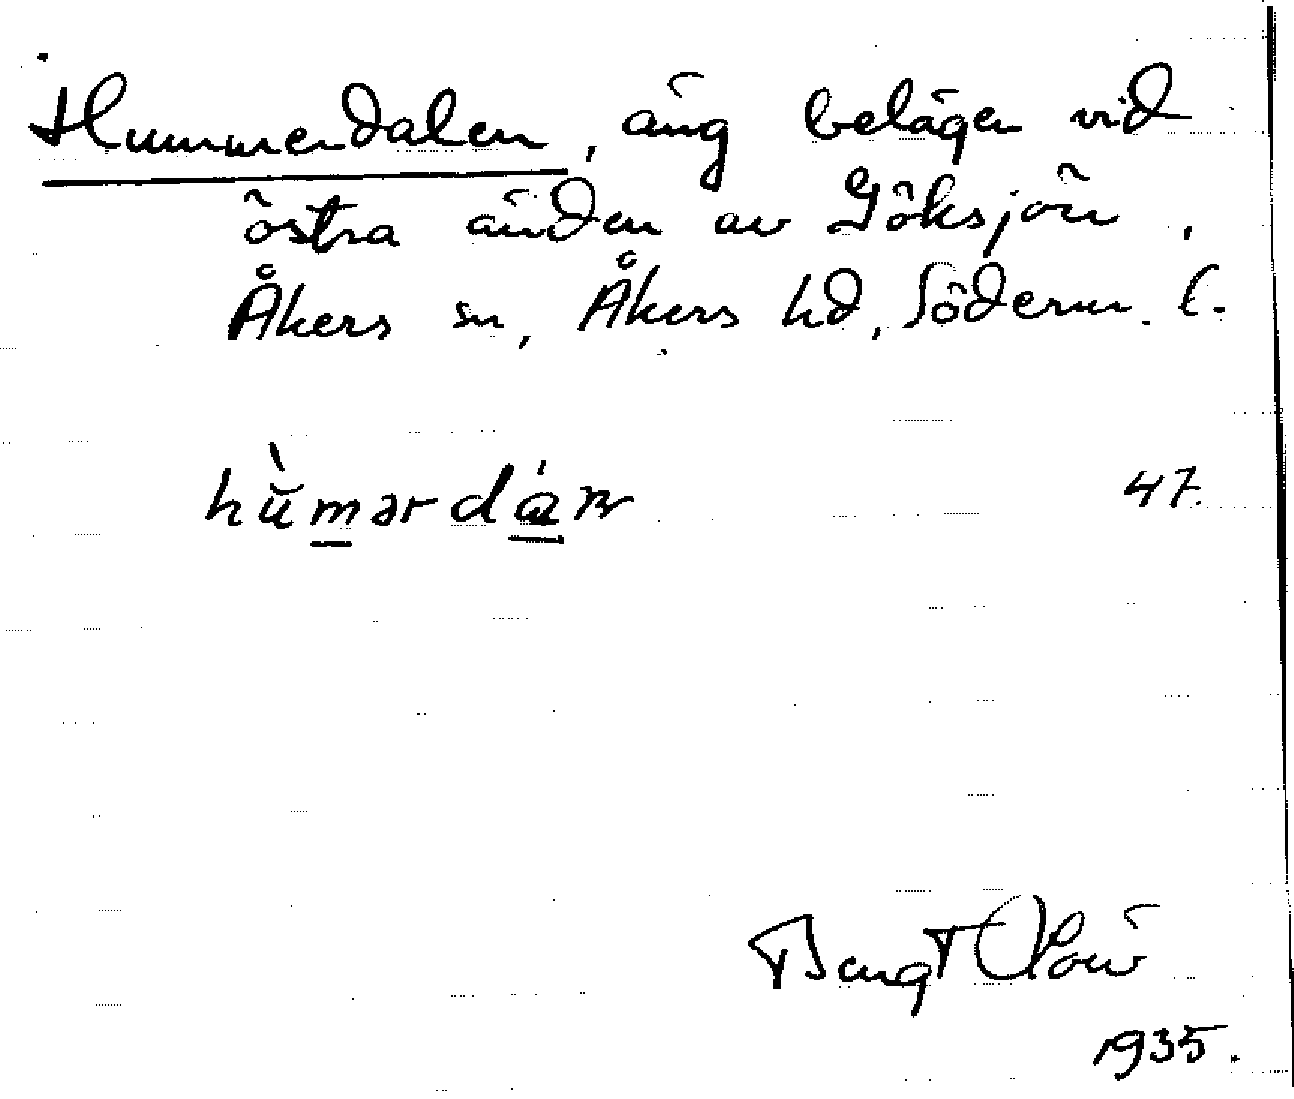 Hummerdalen, äng belägen vid
östra änden av Göksjön,
Åkers sn, Åkers hd, Söderm. l.
47.
Bengt
1935.